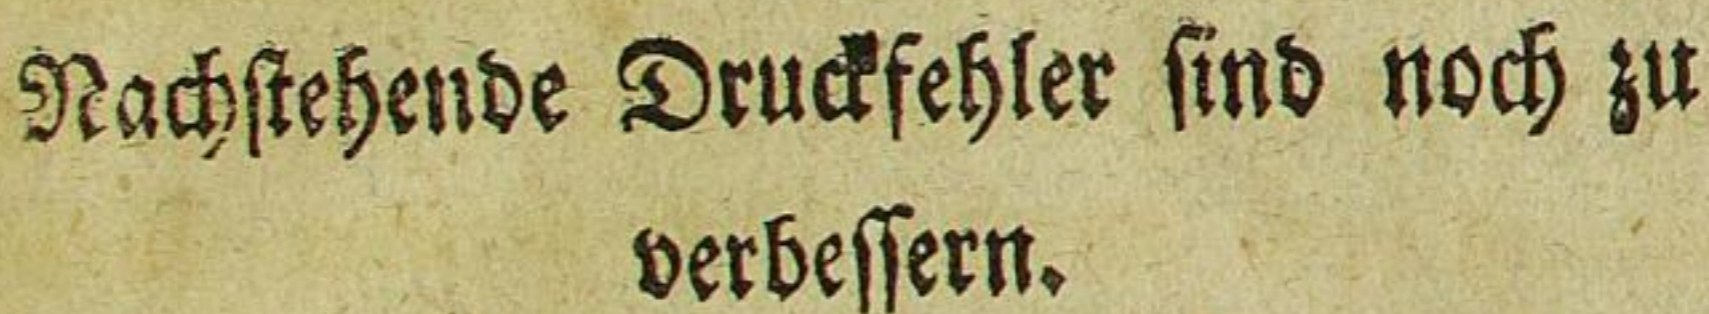 Nachſtehende Druckfehler ſind noch zu
verbeſſern.